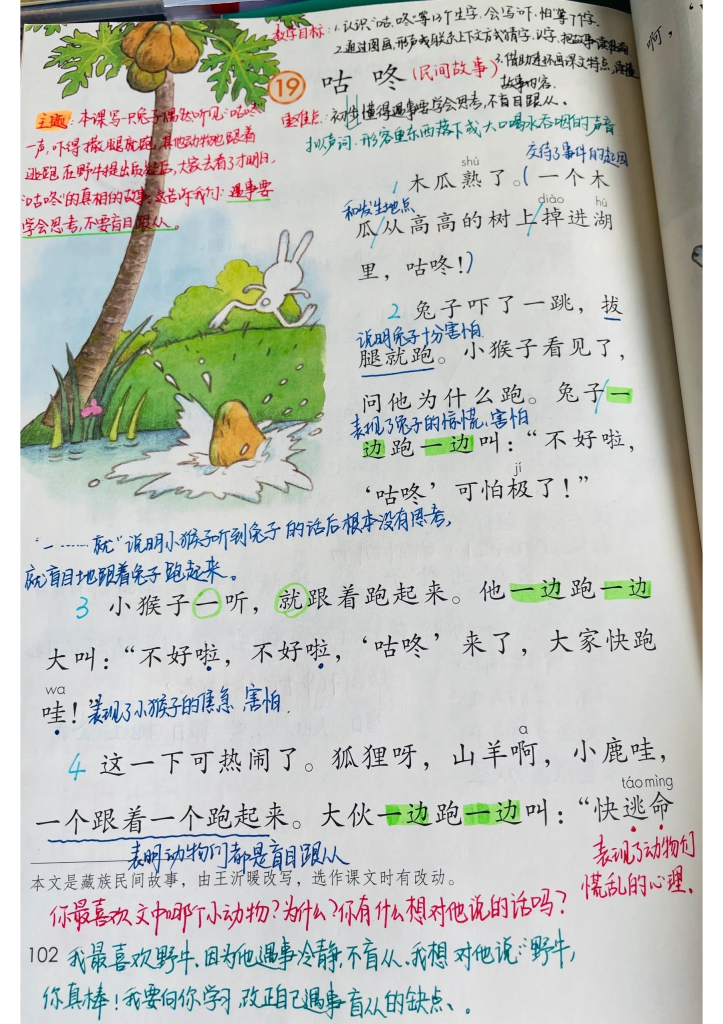 教学目标：1.认识"咕、咚"等13个生字，会写"吓、怕"等7个字。
2.通过图画、形声或联系上下文方式猜字、认字，把故事读
3.借助连环画课文特点，读懂
故事内容。
19 咕咚(民间故事)
重难点：初步懂得遇事要学会思考，不盲目跟从。
拟声词，形容重东西落下或大口喝水吞咽的声音
主题：本课写一只兔子偶然听见"咕咚"
一声，吓得撒腿就跑，其他动物也跟着
逃跑，在野牛提出质疑后，大家去看了才明白
"咕咚"的真相的故事，这告诉我们：遇事要
学会思考，不要盲目跟从。
交待了事件的起因
shú
1 木瓜熟了。(一个木
和发生地点
diào hú
瓜/从高高的树上/掉进湖
里，咕咚！)
2 兔子吓了一跳，拔
说明兔子十分害怕
腿就跑。小猴子看见了，
问他为什么跑。兔子/一
表现了兔子的惊慌、害怕
边跑一边叫：“不好啦，
jí
‘咕咚’可怕极了！”
"一……就"说明小猴子听到兔子的话后根本没有思考，
就盲目地跟着兔子跑起来。
3 小猴子一听，就跟着跑起来。他一边跑一边
大叫：“不好啦，不好啦，‘咕咚’来了，大家快跑
wa
哇！”表现了小猴子的焦急、害怕.
a
4 这一下可热闹了。狐狸呀，山羊啊，小鹿哇，
táo mìng
一个跟着一个跑起来。大伙一边跑一边叫：“快逃命
表明动物们都是盲目跟从
表现了动物们
慌乱的心理。
本文是藏族民间故事，由王沂暖改写，选作课文时有改动。
你最喜欢文中哪个小动物？为什么？你有什么想对他说的话吗？
102
我最喜欢野牛，因为他遇事冷静，不盲从、我想对他说："野牛，
你真棒！我要向你学习，改正自己遇事盲从的缺点、。
啊，